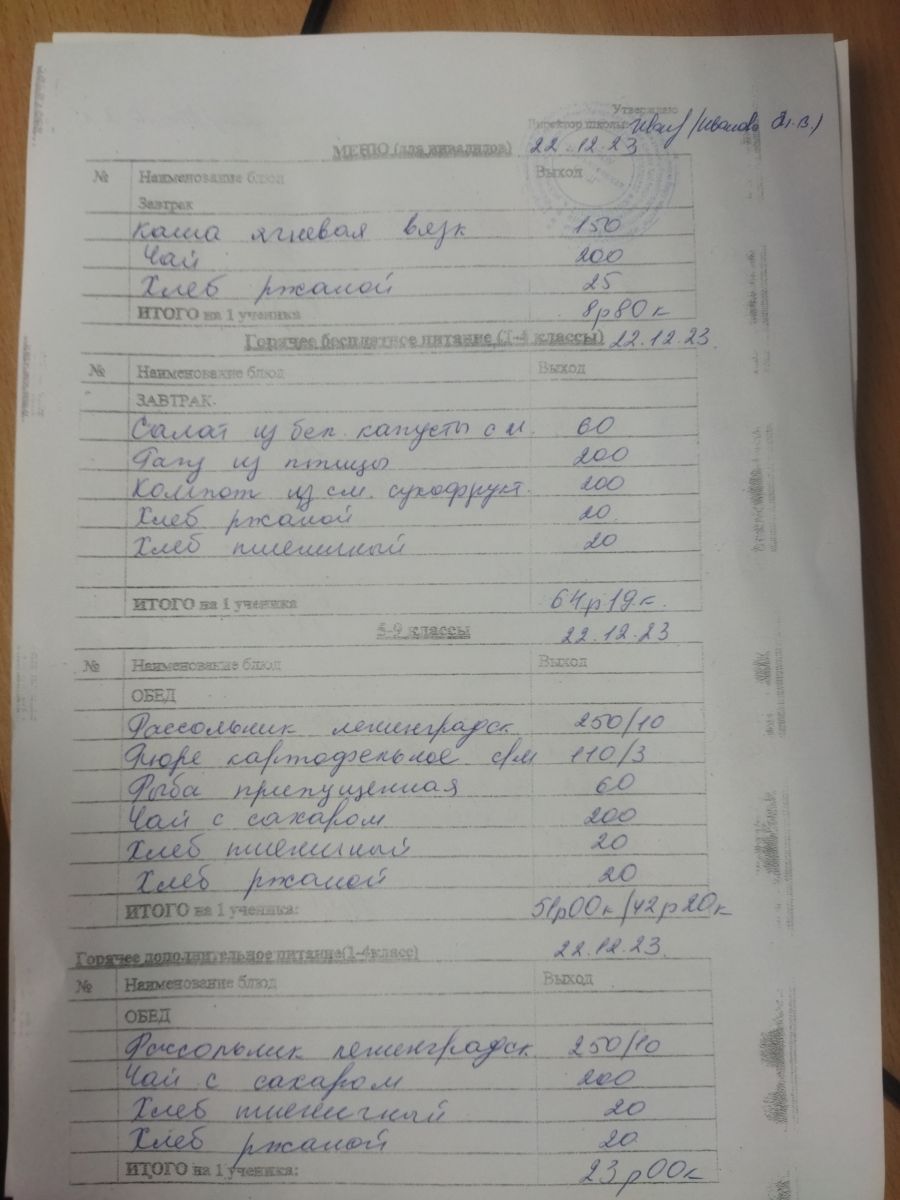 Утверждаю
Директор школы: /Иванова
МЕНЮ (для инвалидов) 22.12.23
№ Наименование блюд Выход
Завтрак
Каша ячневая вязк 150
Чай 200
Хлеб ржаной 25
ИТОГО на 1 ученика 8р80к
Горячее бесплатное питание (1-4 классы) 22.12.23.
№ Наименование блюд Выход
ЗАВТРАК
Салат из бел. капусты с м. 60
Рагу из птицы 200
Компот из см. сухофрукт. 200
Хлеб ржаной 20
Хлеб пшеничный 20
ИТОГО на 1 ученика 64р19к.
5-9 классы 22.12.23
№ Наименование блюд Выход
ОБЕД
Рассольник ленинградск 250/10
Пюре картофельное с/м 110/3
Рыба припущенная 60
Чай с сахаром 200
Хлеб пшеничный 20
Хлеб ржаной 20
ИТОГО на 1 ученика: 51р00к/42р20к
Горячее дополнительное питание(1-4класс) 22.12.23.
№ Наименование блюд Выход
ОБЕД
Рассольник ленинградск 250/10
Чай с сахаром 200
Хлеб пшеничный 20
Хлеб ржаной 20
ИТОГО на 1 ученика: 23р00к